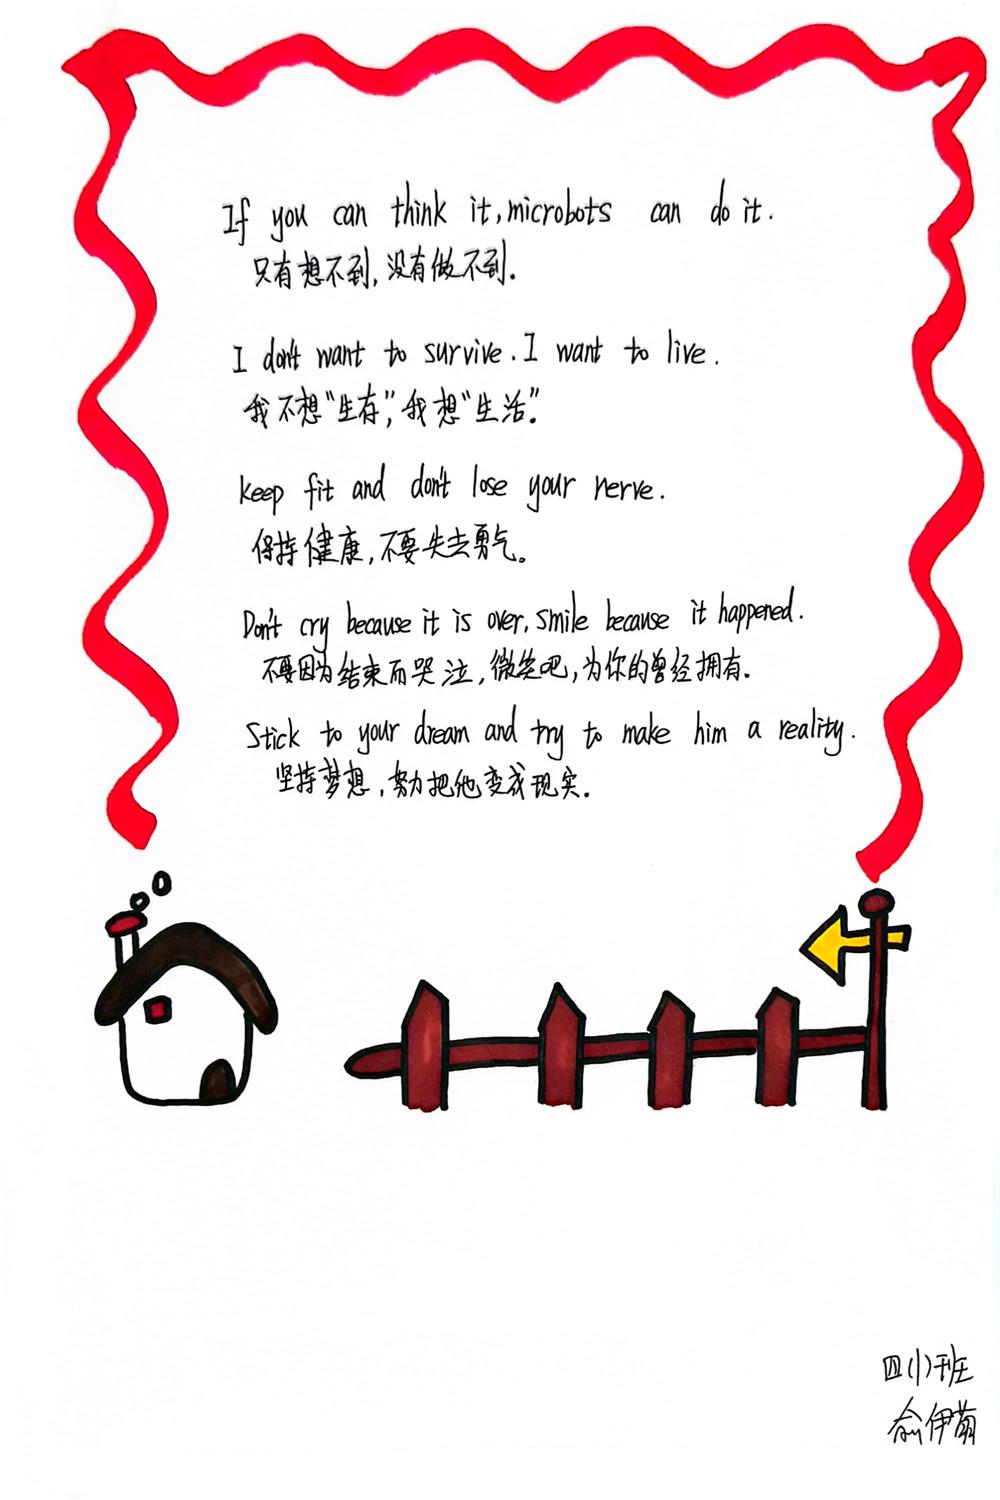 If you can think it, microbots can do it.
只有想不到,没有做不到.
I don't want to survive. I want to live.
我不想“生存”,我想“生活”.
Keep fit and don't lose your nerve.
保持健康,不要失去勇气。
Don't cry because it is over, smile because it happened.
不要因为结束而哭泣,微笑吧,为你的曾经拥有.
Stick to your dream and try to make him a reality.
坚持梦想,努力把他变成现实.
四(1)班
俞伊萌